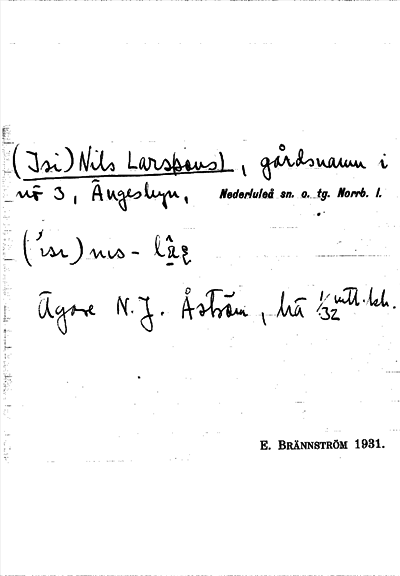 (Isi) Nils Larssons, gårdsnamn i
nö 3, Ängesbyn, Nederluleå sn. o. tg. Norrb. l.
('isi) nis-
Ägare N. J. Åström, hä 1/32 mtl.
E. BRÄNNSTRÖM 1931.